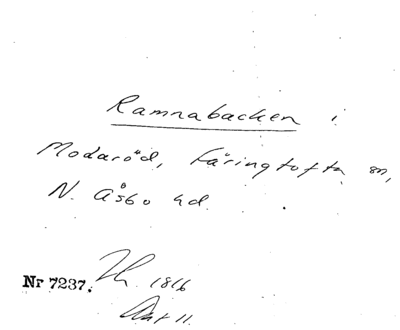 Ramnabacken i
Modaröd, Färingtofta sn,
N. Åsbo hd.
Nr 7237.